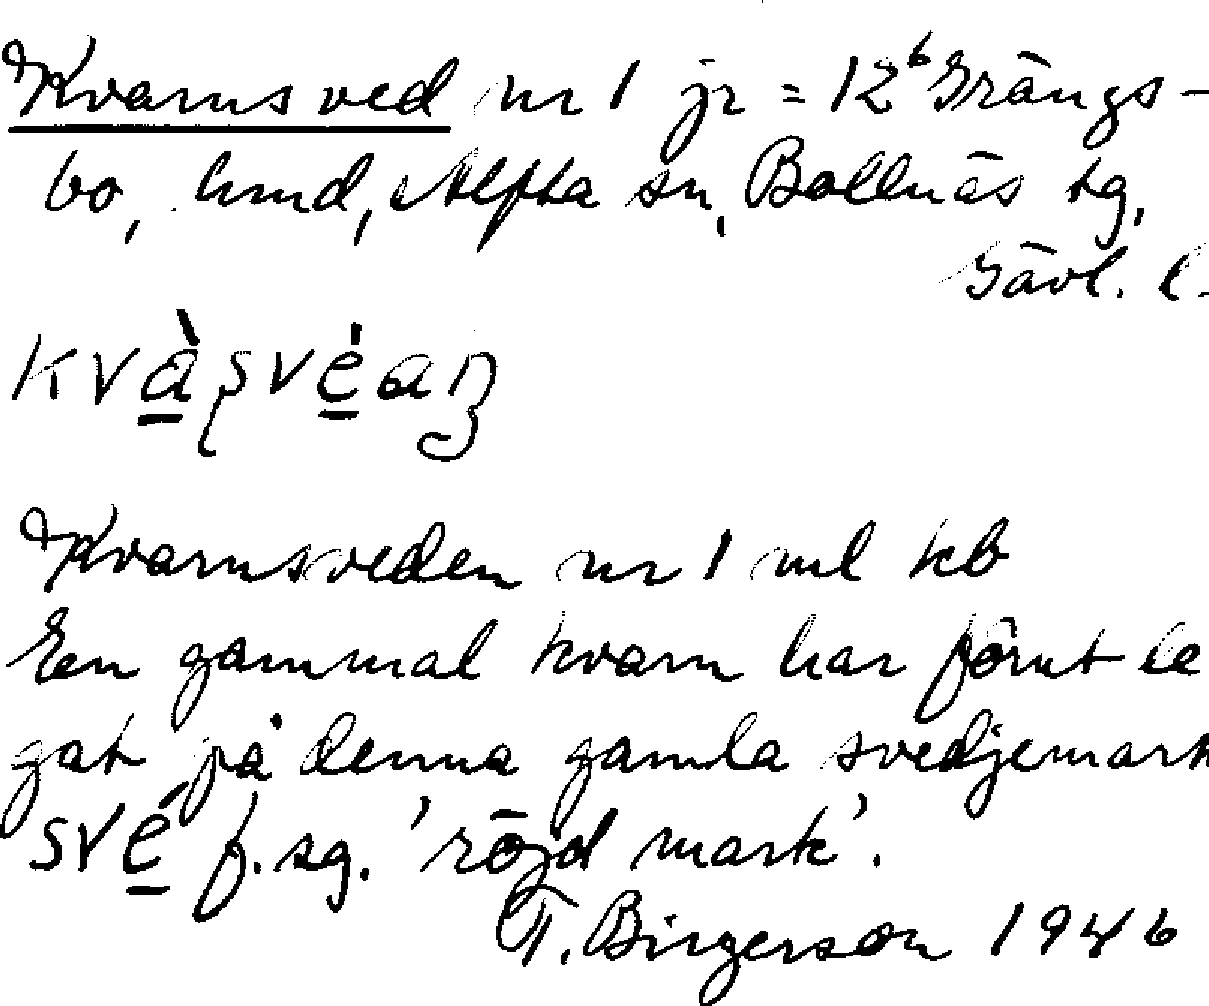 Kvarnsved nr 1 jr = 12ᵇ Grängs-
bo, hmd, Alfta sn, Bollnäs tg,
Gävl. l.
Kvarnsveden nr 1 ml kb
En gammal kvarn har förut le
gat på denna gamla svedjemark
své f. sg. 'röjd mark'.
T. Birgerson 1946